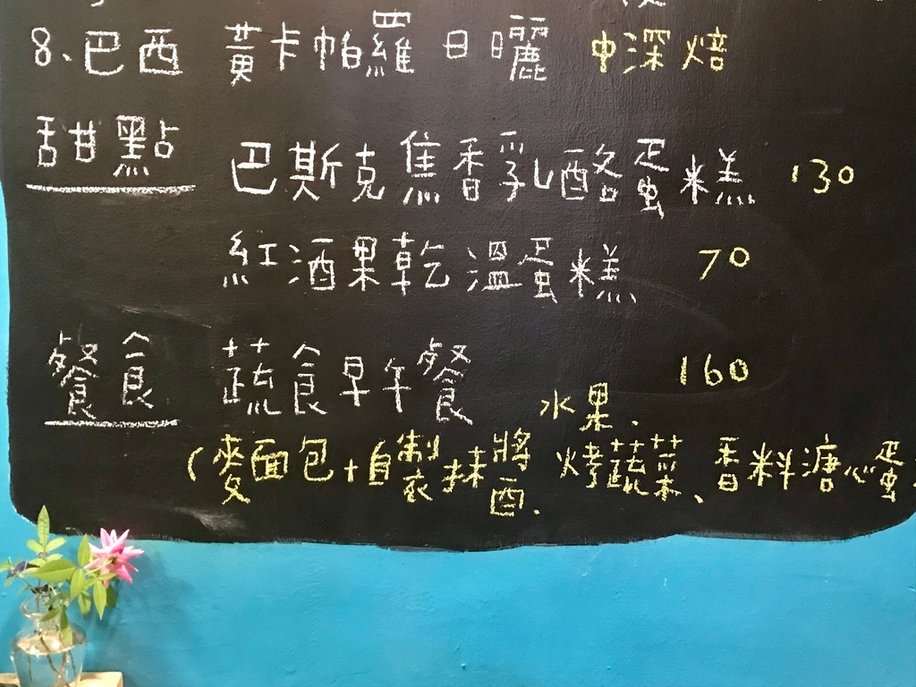 8、巴西 黃卡帕羅 日曬 中深焙
甜點 巴斯克焦香乳酪蛋糕 130
紅酒果乾溫蛋糕 70
餐食 蔬食早午餐 160
水果、
(麥面包+自製抹醬、烤蔬菜、香料溏心蛋